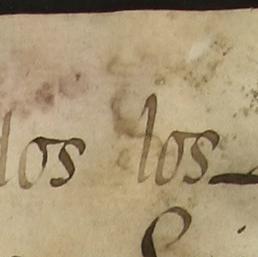 dos los